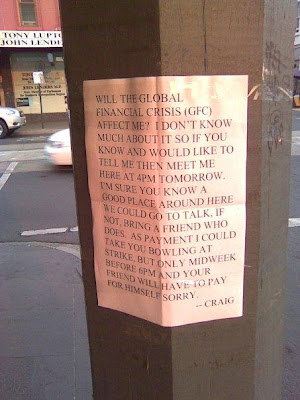 TONY LUPTO
JOHN LENDE
JOHN LENDERS MLC
WILL THE GLOBAL
FINANCIAL CRISIS (GFC)
AFFECT ME? I DON'T KNOW
MUCH ABOUT IT SO IF YOU
KNOW AND WOULD LIKE TO
TELL ME THEN MEET ME
HERE AT 4PM TOMORROW.
I'M SURE YOU KNOW A
GOOD PLACE AROUND HERE
WE COULD GO TO TALK, IF
NOT, BRING A FRIEND WHO
DOES. AS PAYMENT I COULD
TAKE YOU BOWLING AT
STRIKE, BUT ONLY MIDWEEK
BEFORE 6PM AND YOUR
FRIEND WILL HAVE TO PAY
FOR HIMSELF SORRY.
-- CRAIG